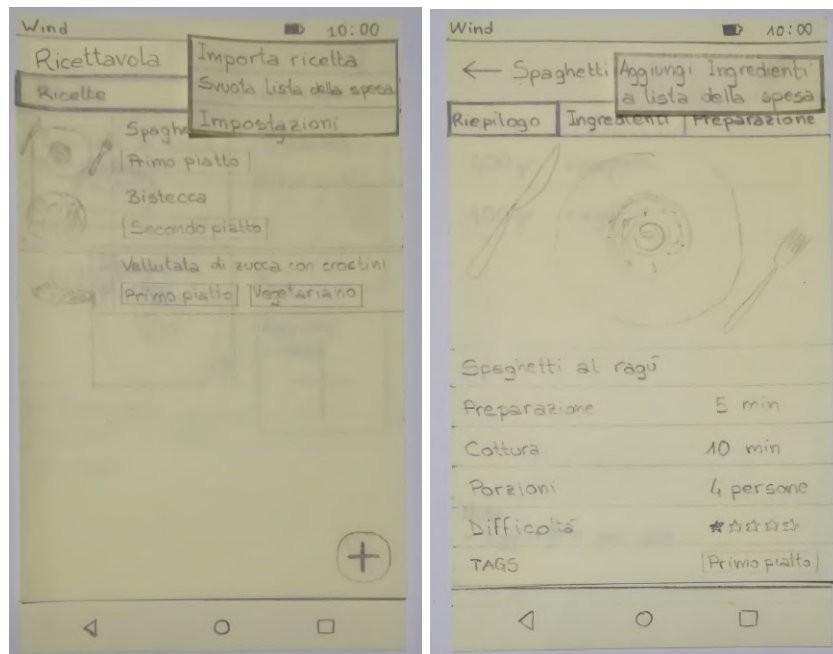 Wind 10:00
Ricettavola
Importa ricetta
Svuota lista della spesa
Impostazioni
Ricette
Spaghe
Primo piatto
Bistecca
Secondo piatto
Vellutata di zucca con crostini
Primo piatto Vegetariano
+
Wind 10:00
← Spaghetti
Aggiungi Ingredienti
a lista della spesa
Riepilogo Ingredienti Preparazione
Spaghetti al ragú
Preparazione 5 min
Cottura 10 min
Porzioni 4 persone
Difficoltá ★☆☆☆☆
TAGS Primo piatto